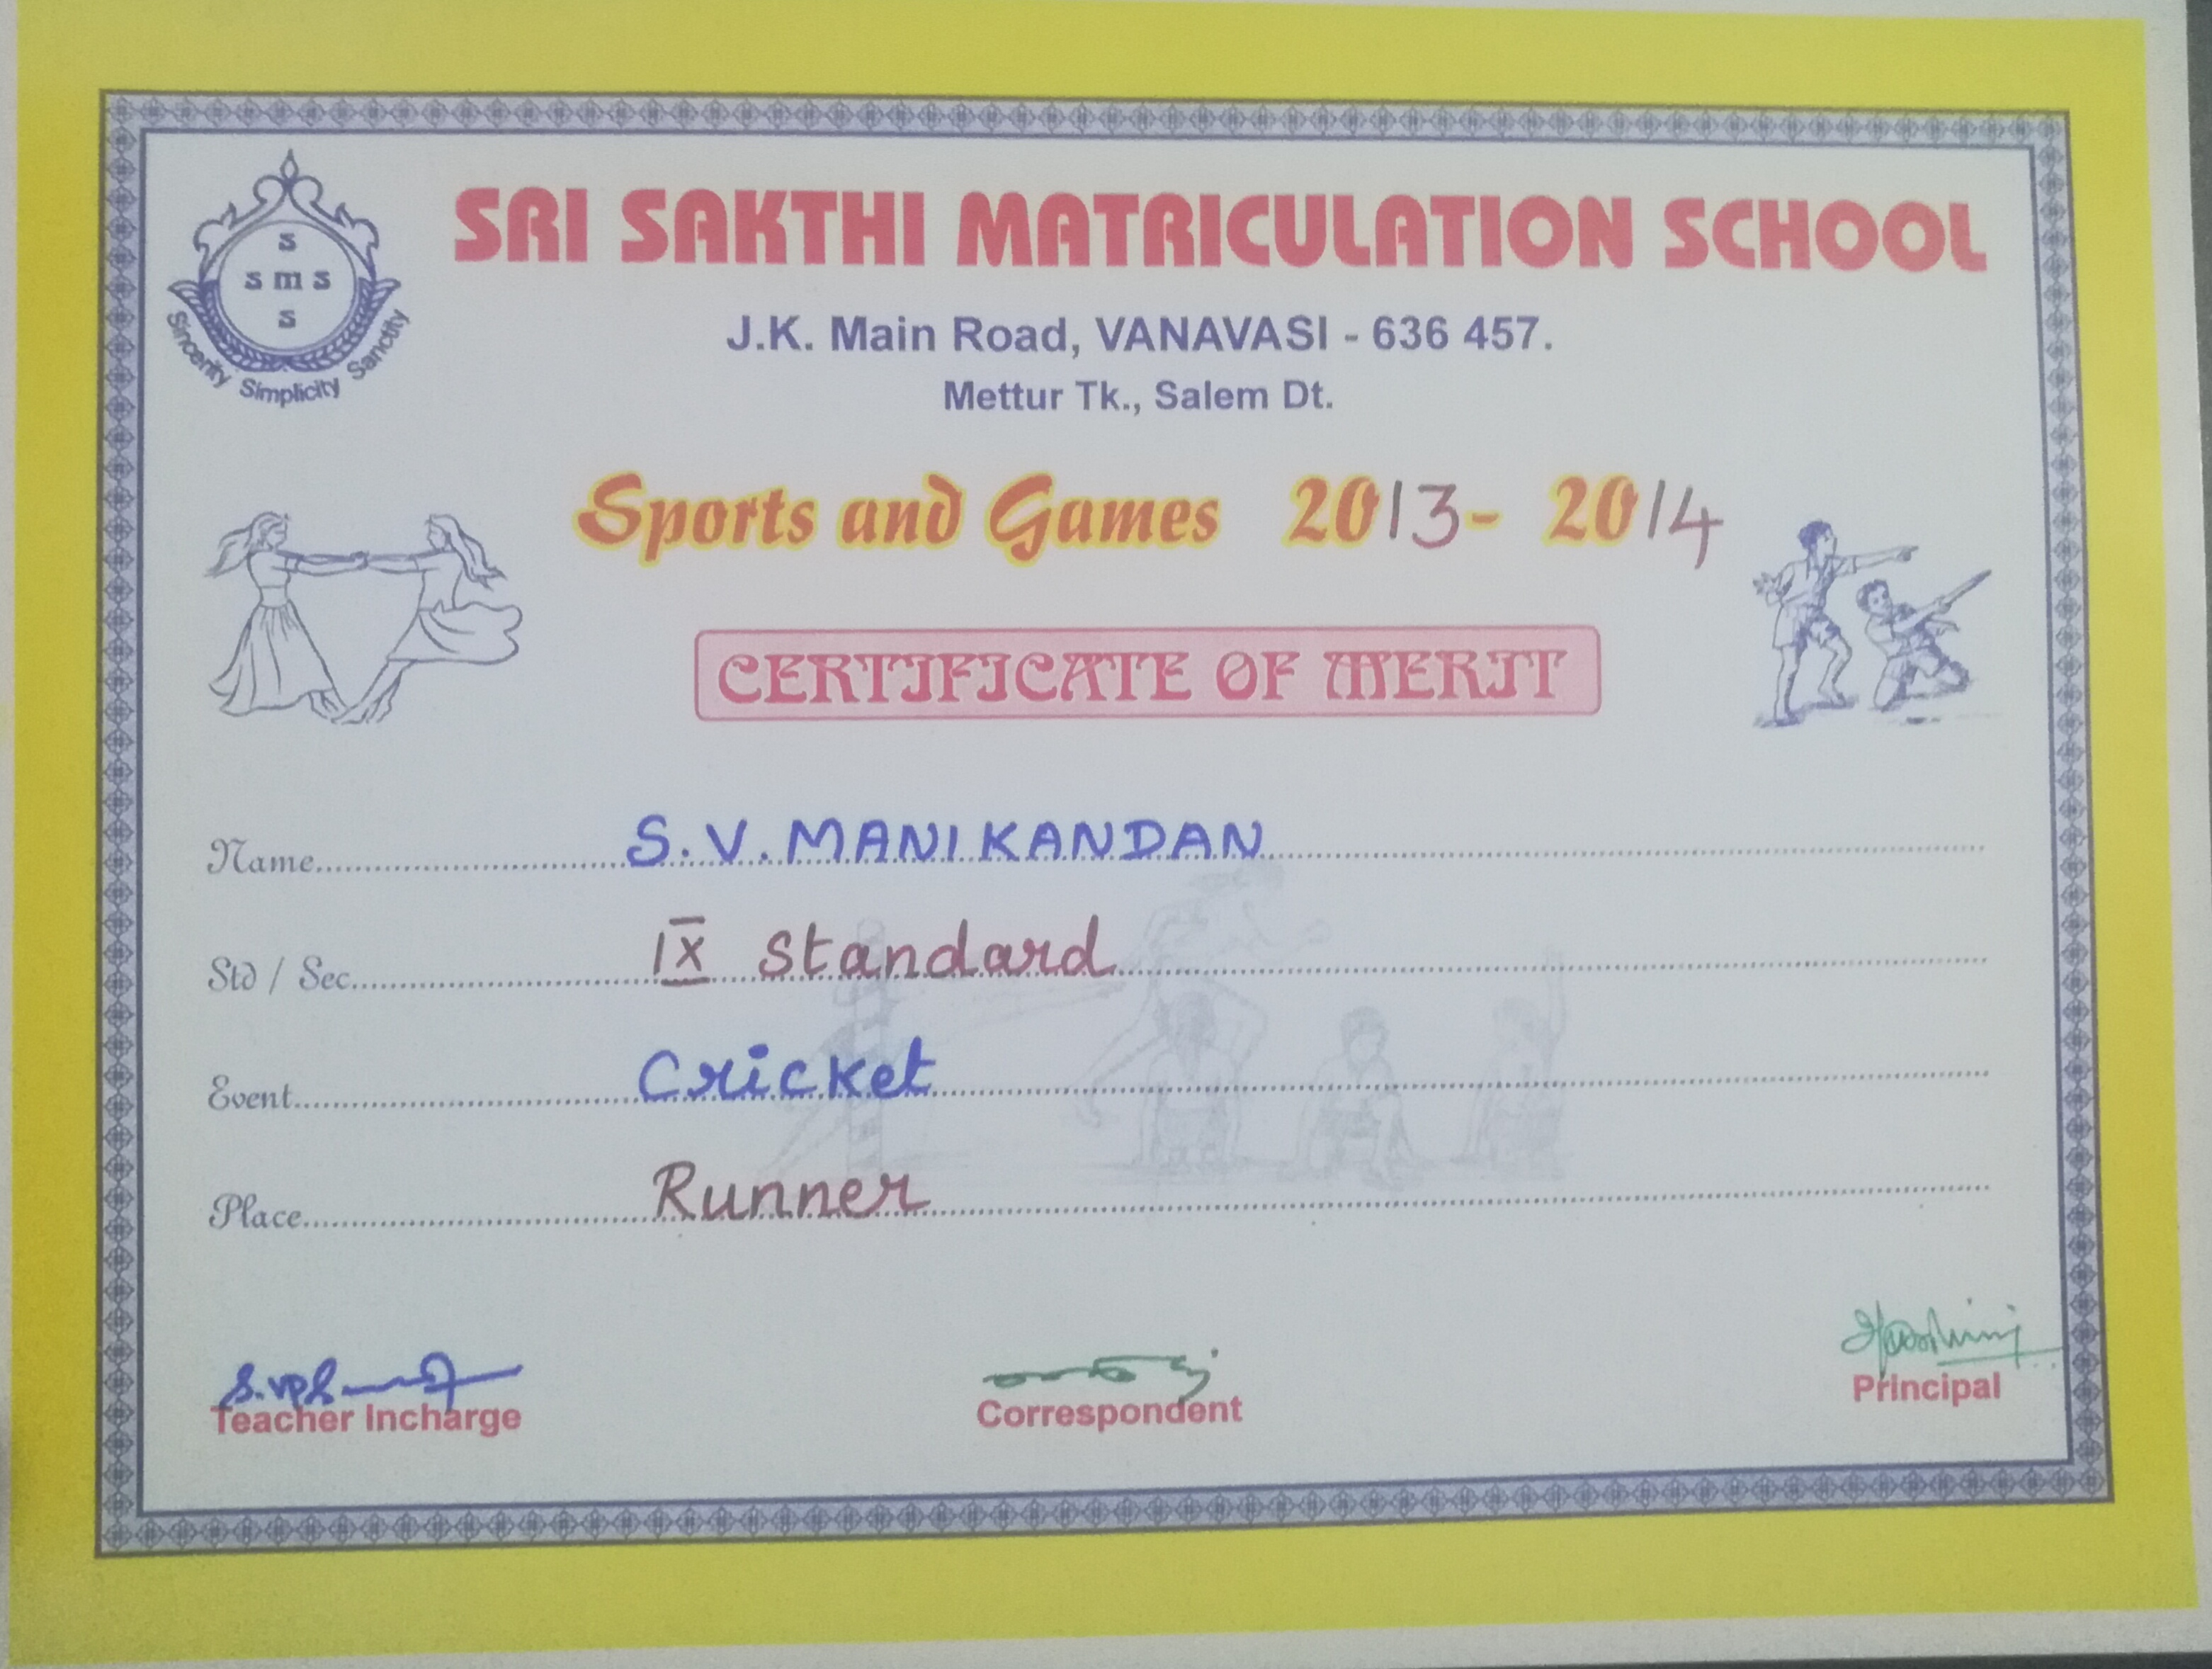 S
S m S
S
Sincerity Simplicity Sanctity
SRI SAKTHI MATRICULATION SCHOOL
J.K. Main Road, VANAVASI - 636 457.
Mettur Tk., Salem Dt.
Sports and Games 2013- 2014
CERTIFICATE OF MERIT
Name S.V.MANIKANDAN
Std / Sec IX Standard
Event Cricket
Place Runner
Teacher Incharge
Correspondent
Principal